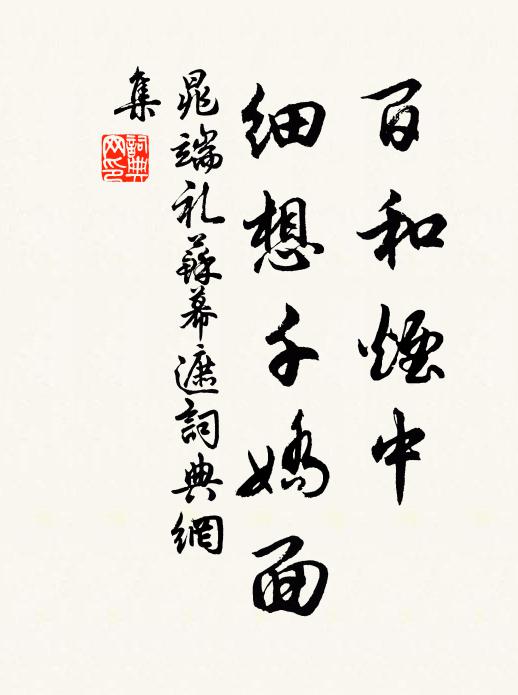 百和煙中
細想千嬌面
晁端礼蘇幕遮詞典網
集
詞典网印